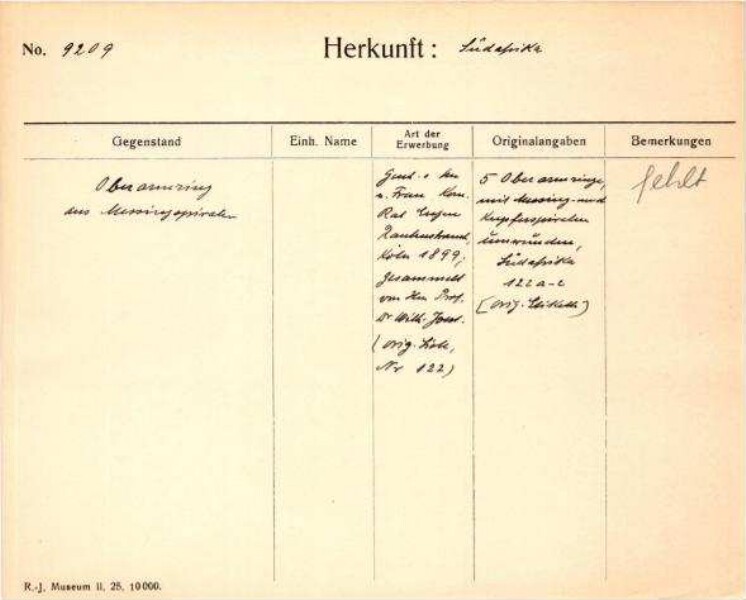 No. 9209
Herkunft: Südafrika
Gegenstand
Einh. Name
Art der
Erwerbung
Originalangaben
Bemerkungen
Oberarmring
aus Messingspiralen
Gesch. v.
u. Frau Kom.
Rat Eugen
Rautenstrauch,
Köln 1899;
gesammelt
von Hrn Prof.
Dr Wilh. Joest.
(orig. Liste,
Nr 122)
5 Oberarmringe,
mit Messing- und
Kupferspiralen
umwunden,
Südafrika
122 a-e
(orig. Etikett)
fehlt
R.-J. Museum II, 25, 10000.